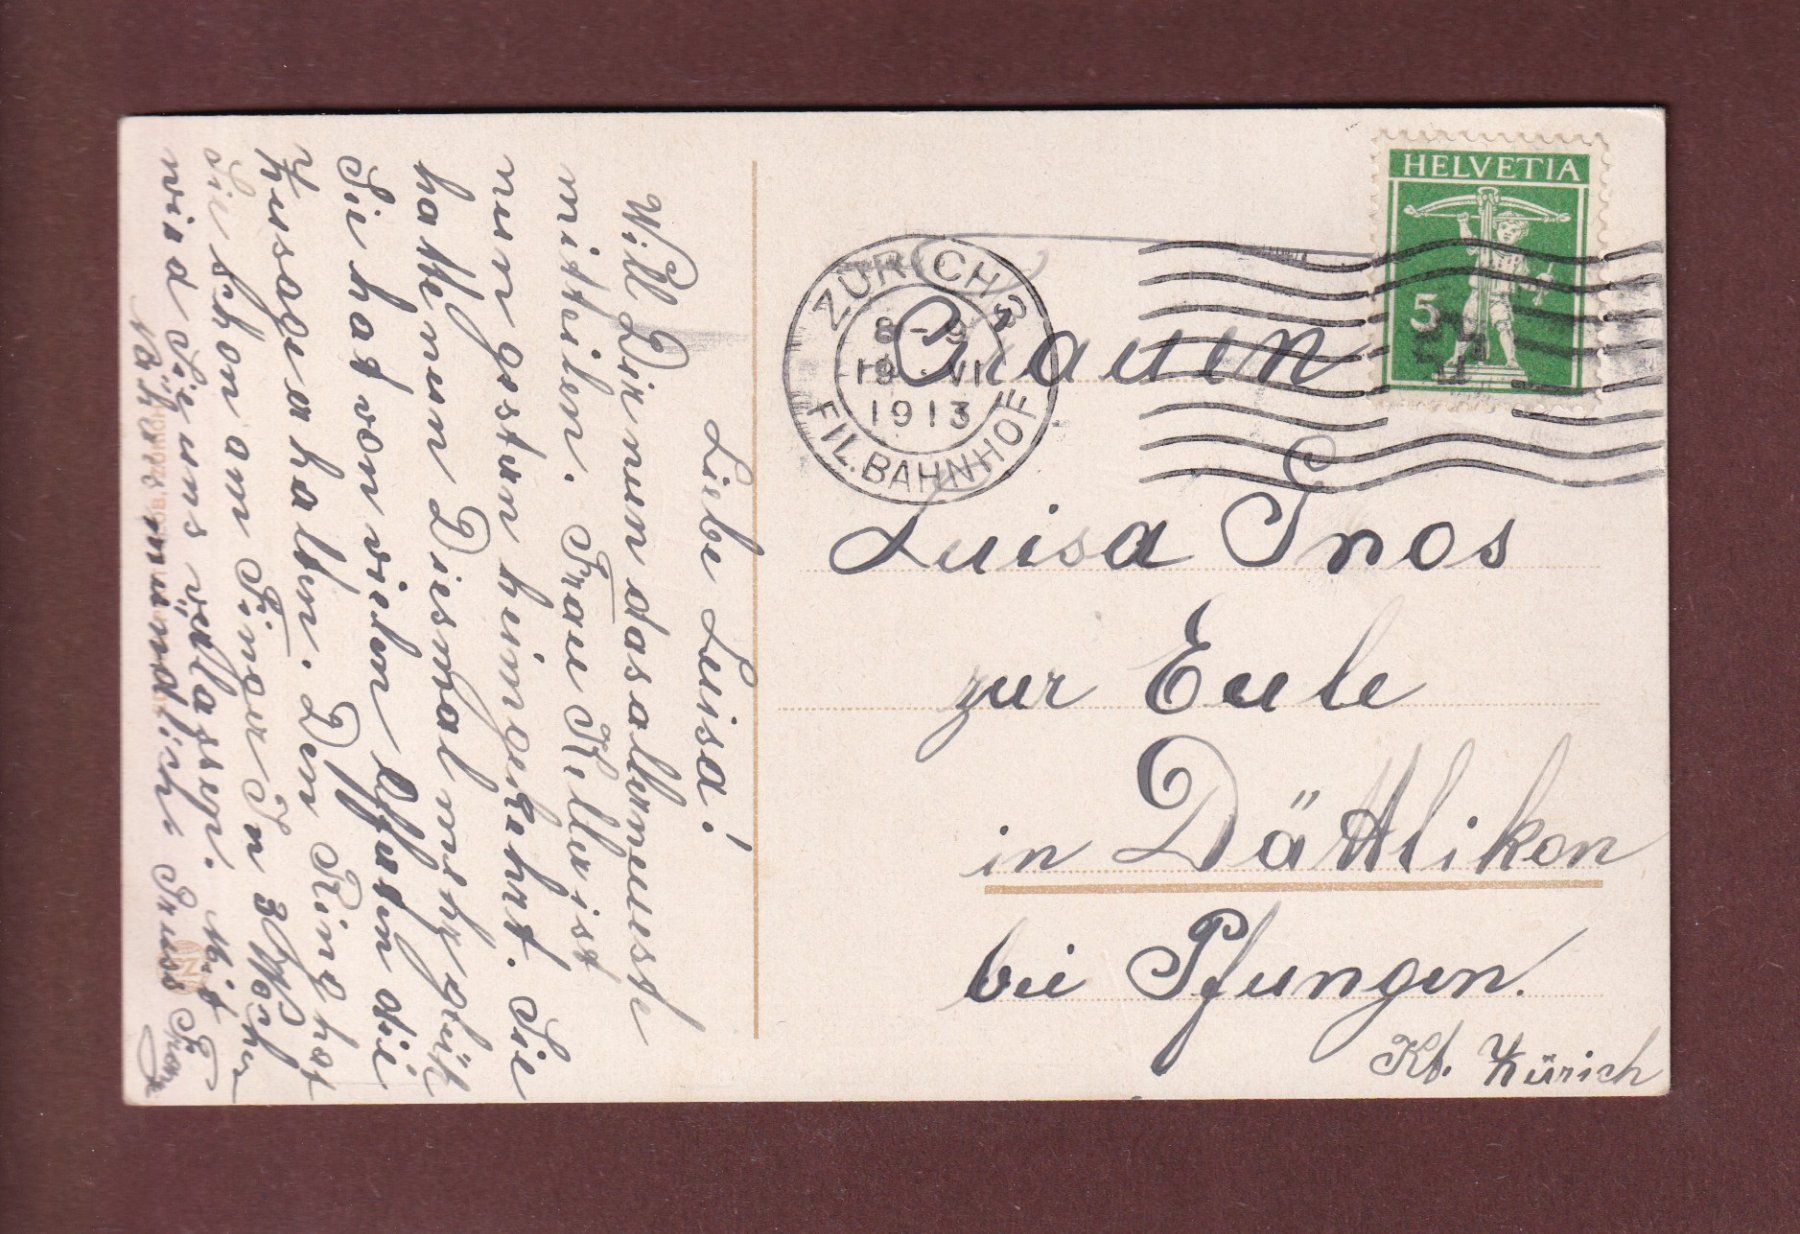 Liebe Luisa!
Will Dir nun das allerneuste
mitteilen. Frau Keller ist
nun gestern heimgekehrt. Sie
hatte nun Diesmal mehr glük
Sie hat von vielen Offerten die
Zusage erhalten. Den Ring hat
sie schon am Finger In 3
wird Sie uns verlassen. Mit
Näheres mündlich Gruss
HELVETIA
5
ZÜRICH 3
8-9
19. VI
1913
FIL. BAHNHOF
Frauen
Luisa Enos
zur Eule
in Dättlikon
bei Pfungen.
Kt. Zürich